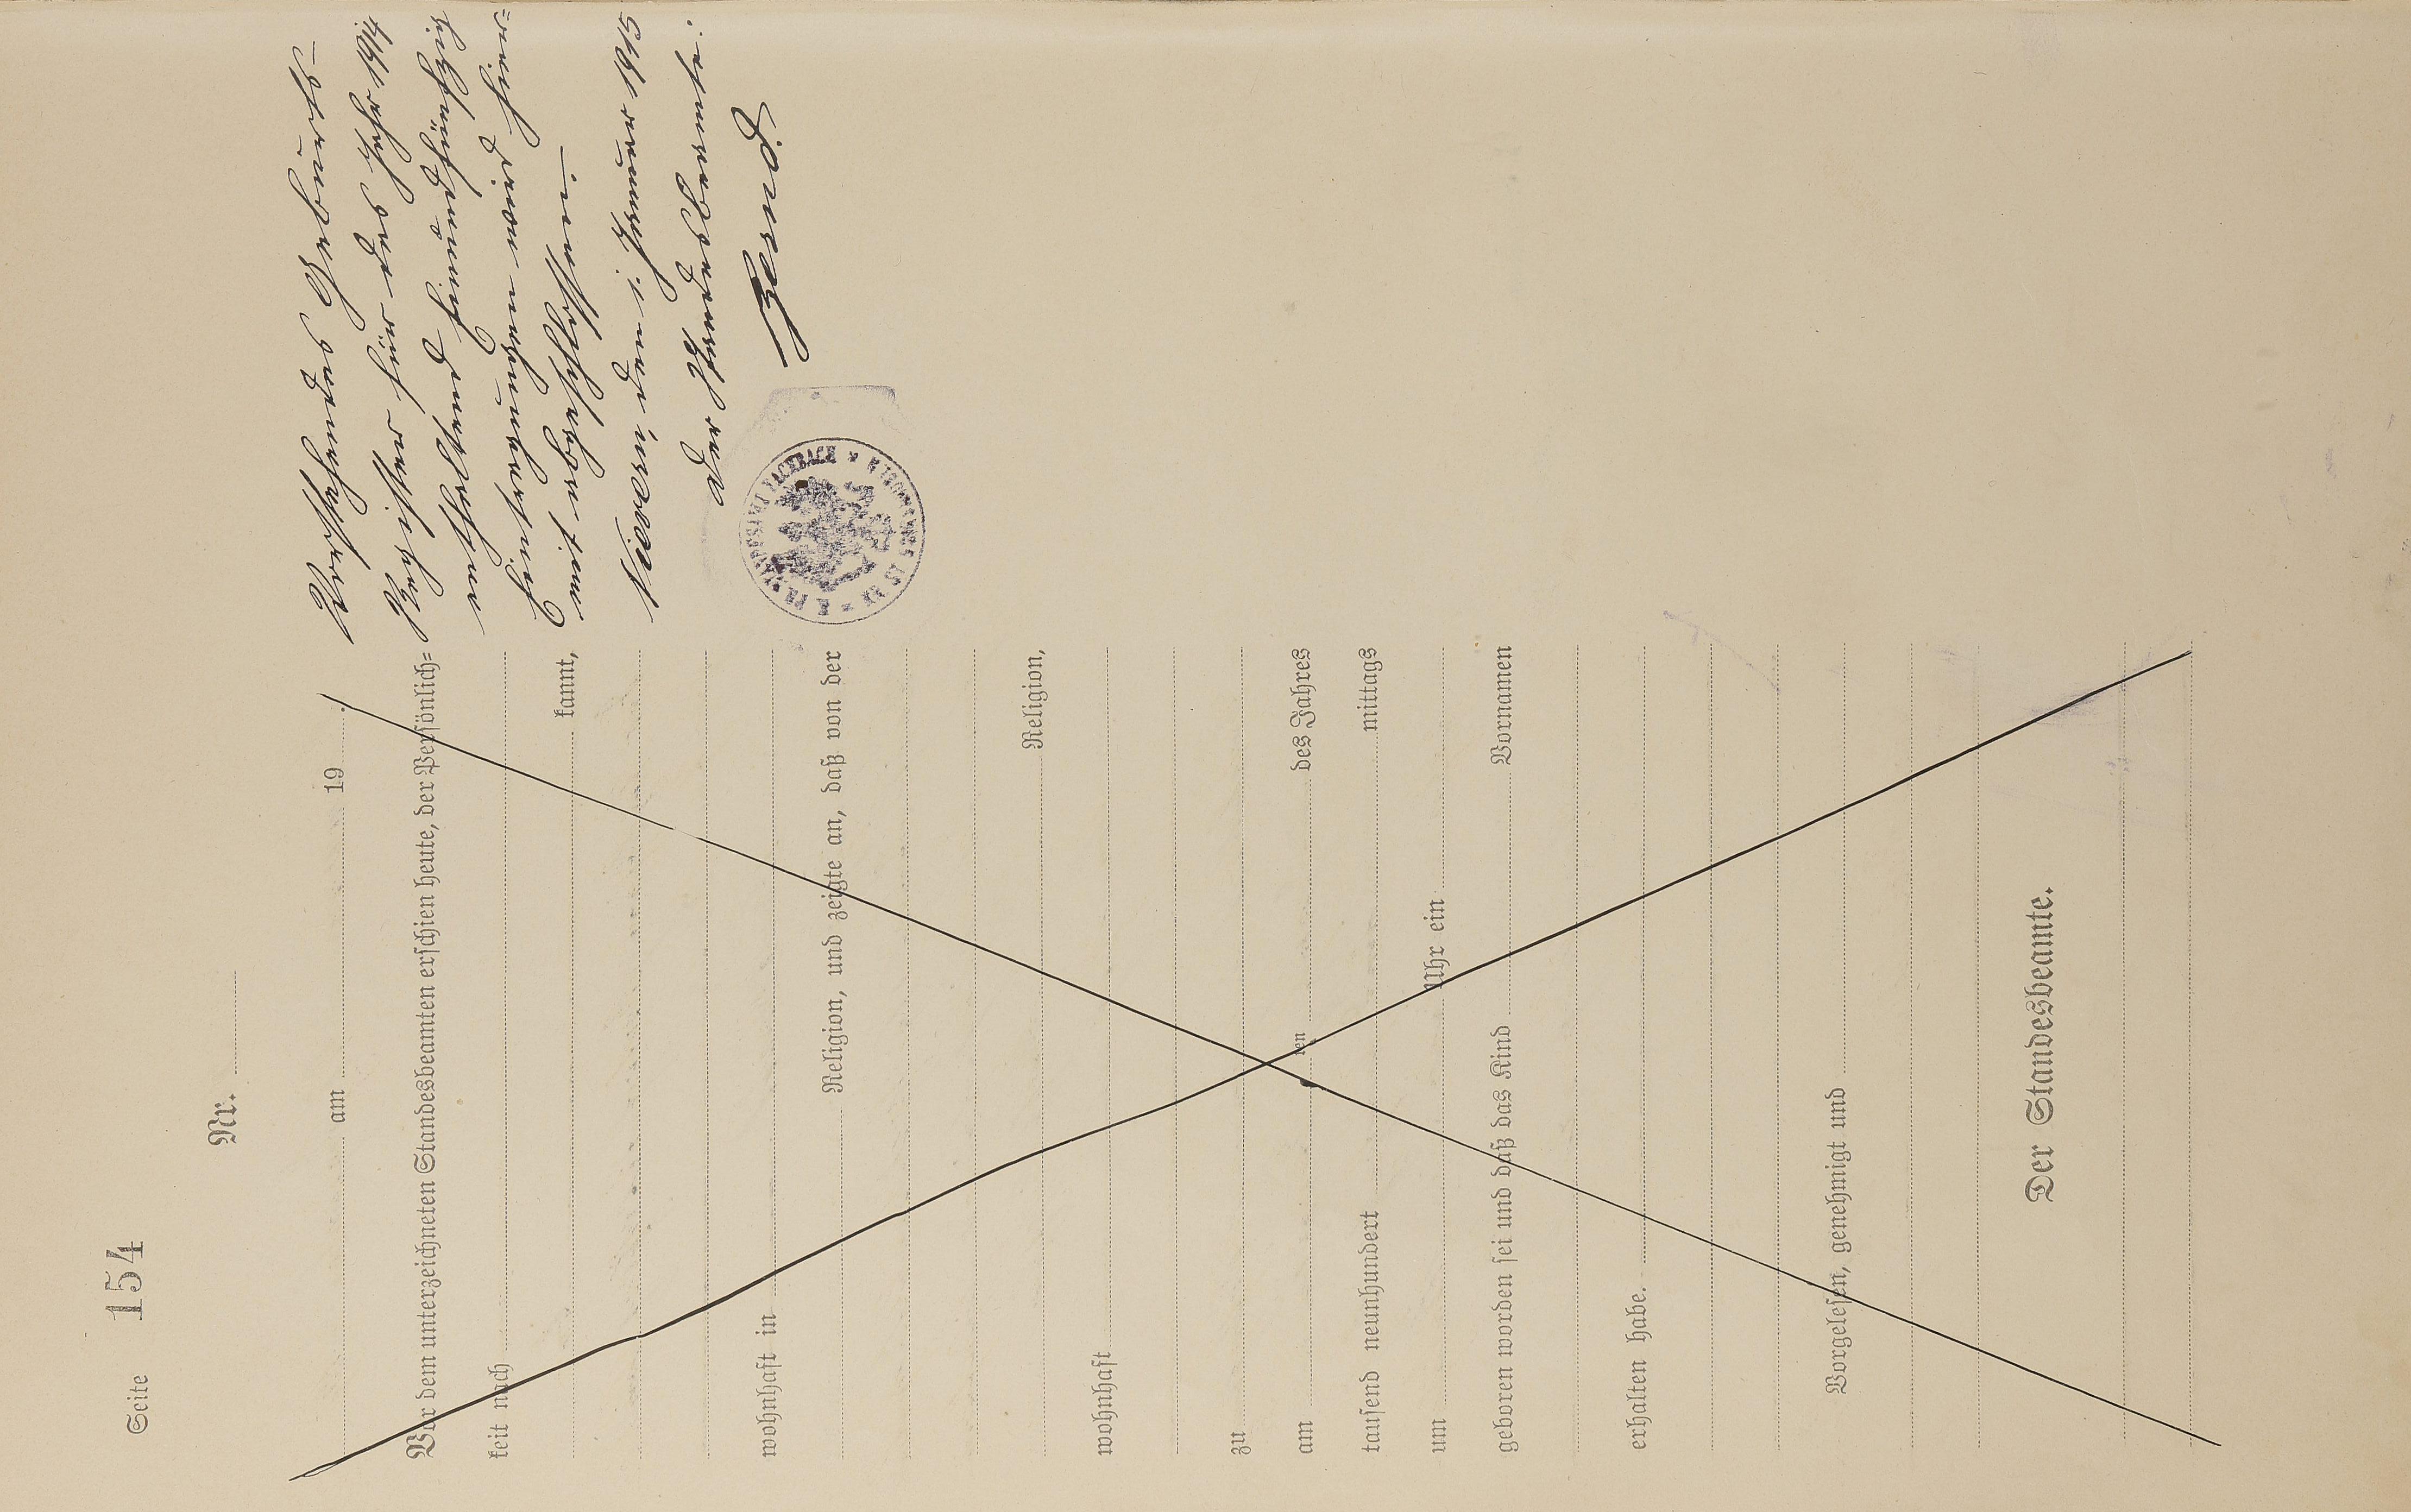 Seite 154
Nr.
am 19 .
Vor dem unterzeichneten Standesbeamten erschien heute, der Persönlich=
keit nach
kannt,
wohnhaft in
Religion, und zeigte an, daß von der
Religion,
wohnhaft
zu
am ten des Jahres
tausend neunhundert mittags
um Uhr ein
geboren worden sei und daß das Kind Vornamen
erhalten habe.
Vorgelesen, genehmigt und
Der Standesbeamte.
Vorstehendes Geburts-
Register für das Jahr 1914
enthaltend Einundfünfzig
Eintragungen wird hier=
mit abgeschlossen.
Nievern, den 1. Januar 1915
Der Standesbeamte:
FACHBACH